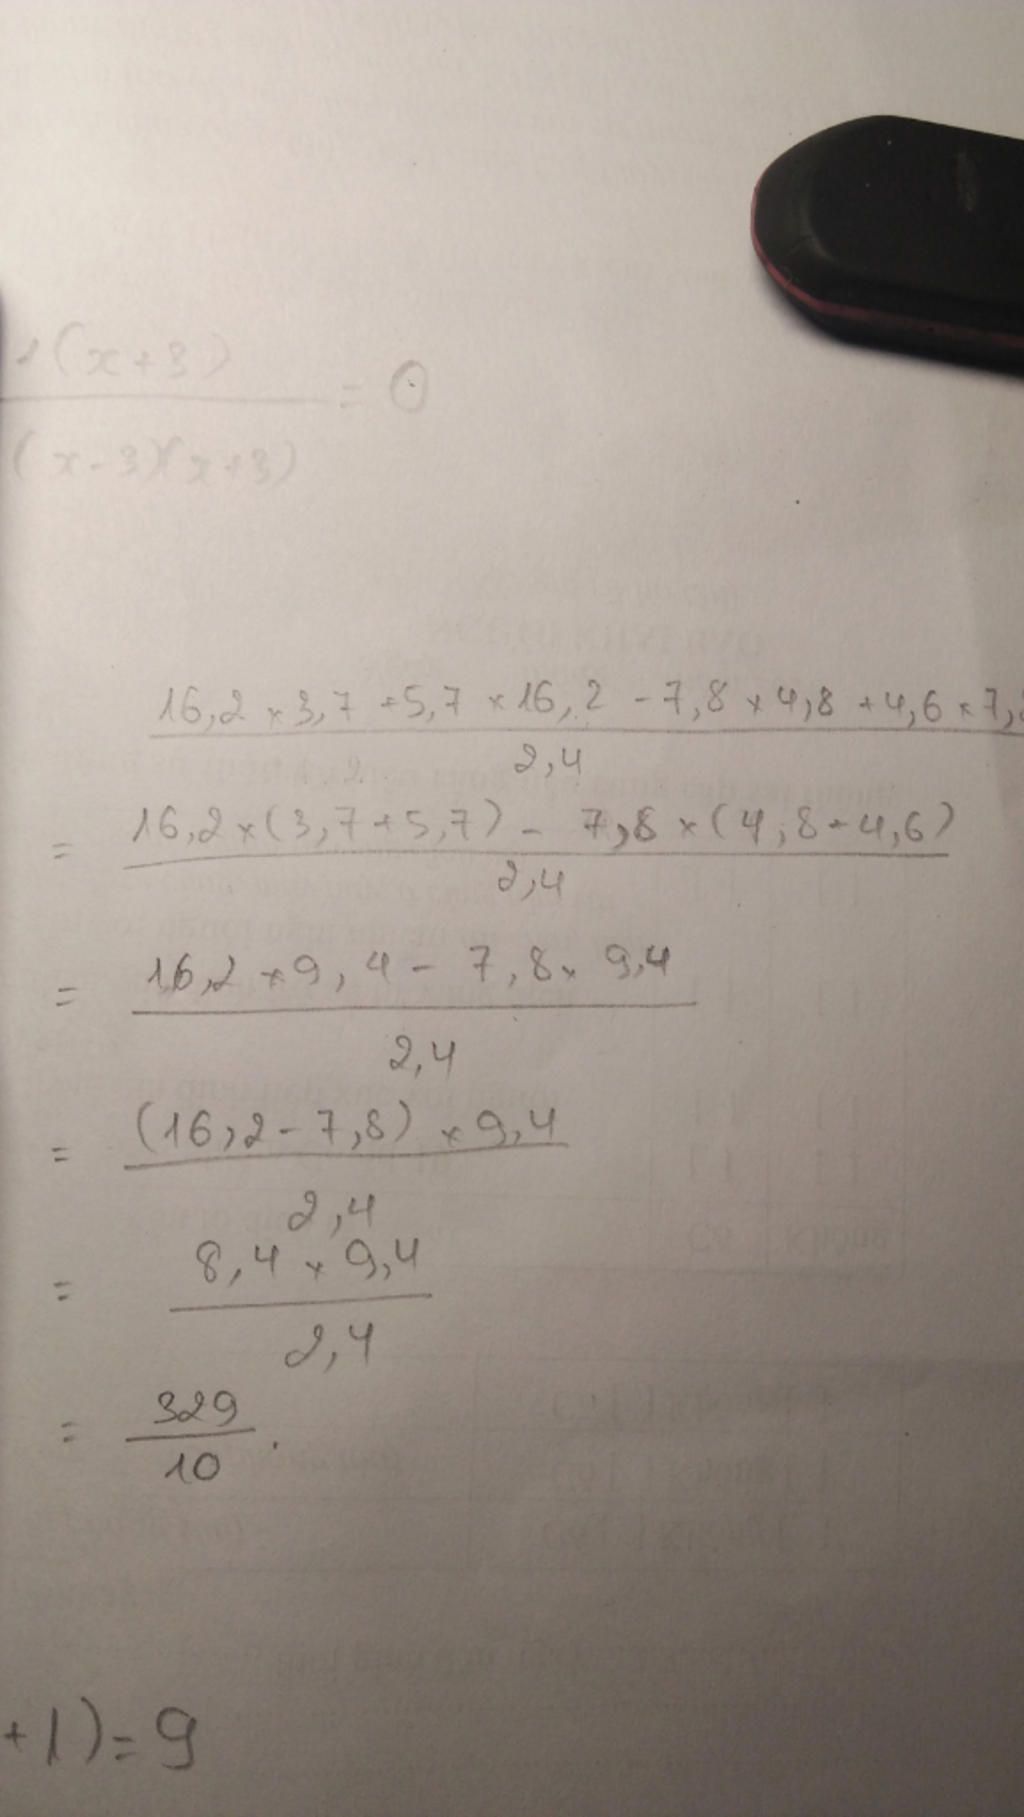 1(x+3)
= 0
(x-3)(x+3)
16,2 × 3,7 + 5,7 × 16,2 - 7,8 × 4,8 + 4,6 × 7,
2,4
16,2 × (3,7 + 5,7) - 7,8 × (4,8 + 4,6)
=
2,4
16,2 × 9,4 - 7,8 × 9,4
=
2,4
(16,2 - 7,8) × 9,4
=
2,4
8,4 × 9,4
=
2,4
329
=
10 .
+1) = 9